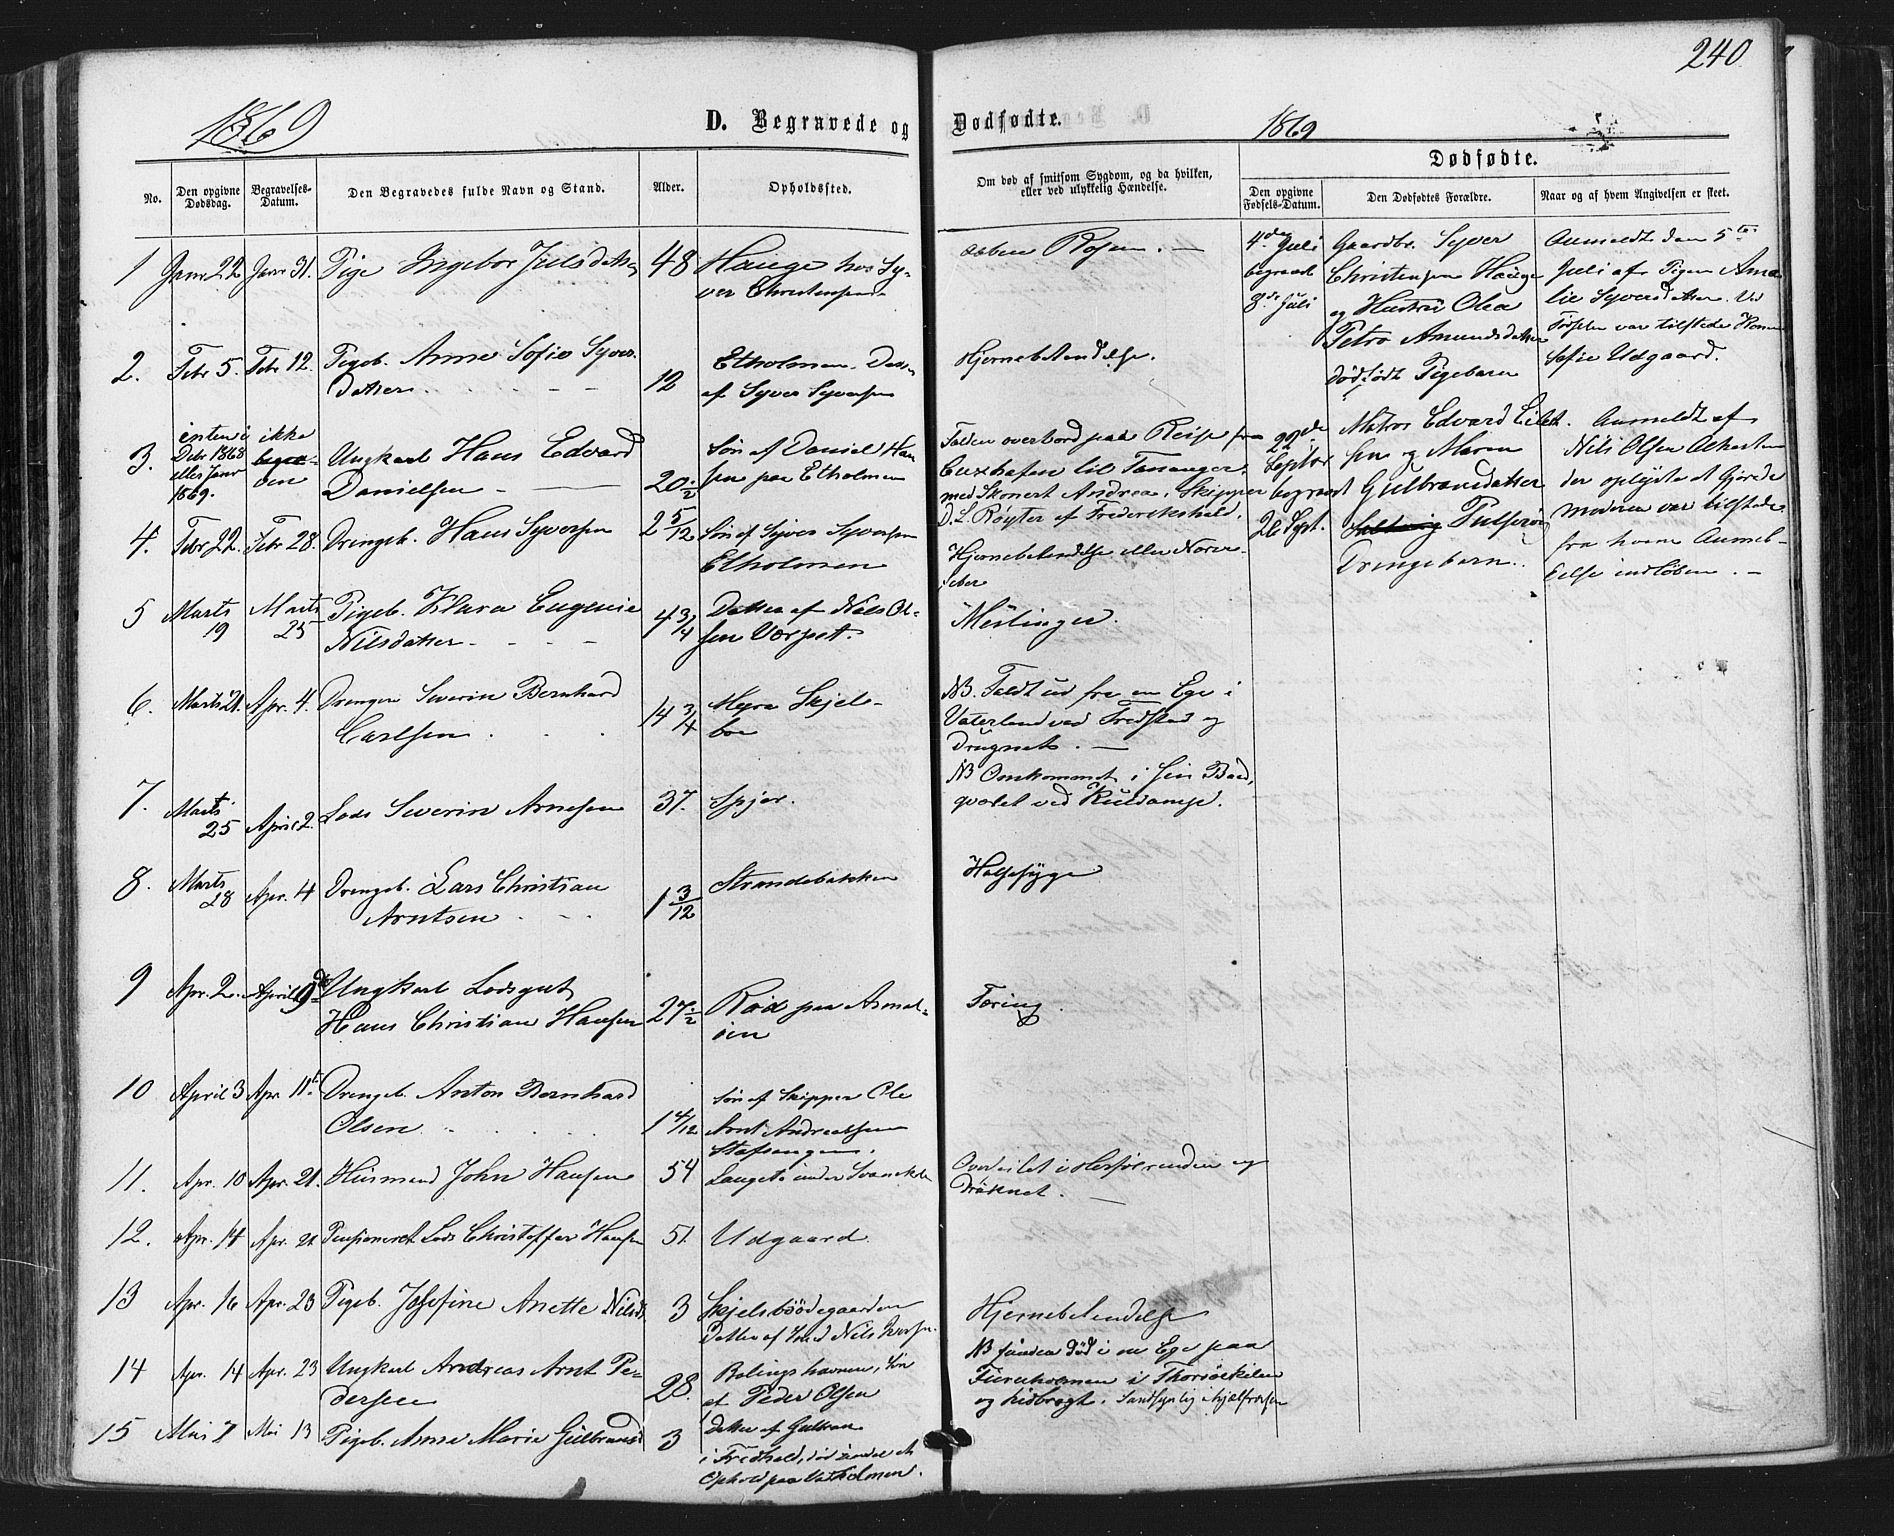 240
1869
D. Begravede og Dødfødte.
1869
Dødfødte.
No.
Den opgivne Dødsdag.
Begravelses-Datum.
Den Begravedes fulde Navn og Stand.
Alder.
Opholdssted.
Om død af smitsom Sygdom, og da hvilken,
eller ved ulykkelig Hændelse.
Den opgivne Fødsels-Datum.
Den Dødfødtes Forældre.
Naar og af hvem Angivelsen er skeet.
1 Janr 22 Janr 31. Pige Ingebor Julsdatter 48 Hauge hos Sy-
ver Christensen
aaben Rosen. —
2. Febr 5. Febr 12. Pigeb. Anne Sofie Syvers
Datter 12 Etholmen. Datter
af Syver Syversen
Hjernebetændelse.
3. enten i Debr 1868 eller Janr 1869. ikke begra-ven
Ungkarl Hans Edvard
Danielsen 20 1/2 Søn af Daniel Han
sen paa Etholmen
Falden overbord paa Reise fra
Cuxhafen til Tananger
med Skonert Andrea, Skipper
D. L. Røyter af Frederikshald.
4. Febr 22. Febr 28. Drengeb. Hans Syversen 2 5/12 Søn af Syver Syversen
Etholmen
Hjernebetændelse eller Nerve-
feber
5 Marts 19 Marts 25 Pigeb. Klara Eugenie
Nilsdatter 4 3/4 Datter af Nils Ol-
sen
Meslinger.
6. Marts 21. Apr. 4. Drengen Severin Bernhard
Carlsen 14 3/4 Myra Skjels-
boe
NB. Faldt ud fra en Ege i
Vaterland ved Fredstad og
druknet. —
7. Marts 25 April 2. Lods Severin Arnesen 37. Spjær.
NB Omkommet i sin Baad,
qvalet ved
8. Marts 28 Apr. 4 Drengeb. Lars Christian
Arntsen 1 3/12 Strandebakken
Halsesyge
9 Apr. 2. April 9de Ungkarl Lodsgut
Hans Christian Hansen 27 1/2 Rød paa Asmal-
øen
Tæring.
10 April 3 Apr. 11te Drengeb. Anton Bernhard
Olsen 1 4/12 Søn af Skipper Ole
Arnt Andreassen
Stafsengen.
11. Apr. 10 Apr. 21. Husmand John Hansen 54 Langeto under
Overseilet i Herføl renden og
druknet. —
12. Apr. 14 Apr. 21 Pensioneret Lods Christoffer Hansen 51 Udgaard
13 Apr. 16 Apr. 23 Pigeb. Josefine Anette Nilsd. 3 Skjelsbøødegaarden
Datter af Smed Nils
Hjernebetændelse
14 Apr. 14 Apr. 23 Ungkarl Andreas Arnt Pe-
dersen 28. Bølingshavnen, Søn
af Peder Olsen
NB funden død i en Ege paa
Fureholmen i Thorsøekilen
og hidbragt. Sandsynlig ihjælfrosen
15 Mai 7 Mai 13 Pigeb. Anne Marie Gulbrandsd 3 Datter af Gulbran
i Fredhald, død under et
Ophold paa
4de Juli
begravet
8de Juli
Gaardbr. Syver
Christensen Hauge
og Hustru Olea
Petra Amundsdatter
dødfødt Pigebarn
Anmeldt den 5te
Juli af Pigen Ama
lie Syversdatter. Ved
Fødselen var tilstede Kone
Sofie Udgaard.
22de
Septbr
begravet
26 Sept.
Matros Edvard Eilert
sen og Maren
Gulbransdatter
Pulserøe
Drengebarn.
Anmeldt af
Nils Olsen
der oplyste at Gjorde
moderen var tilstede
fra hvem Anmel-
delse indløben. —